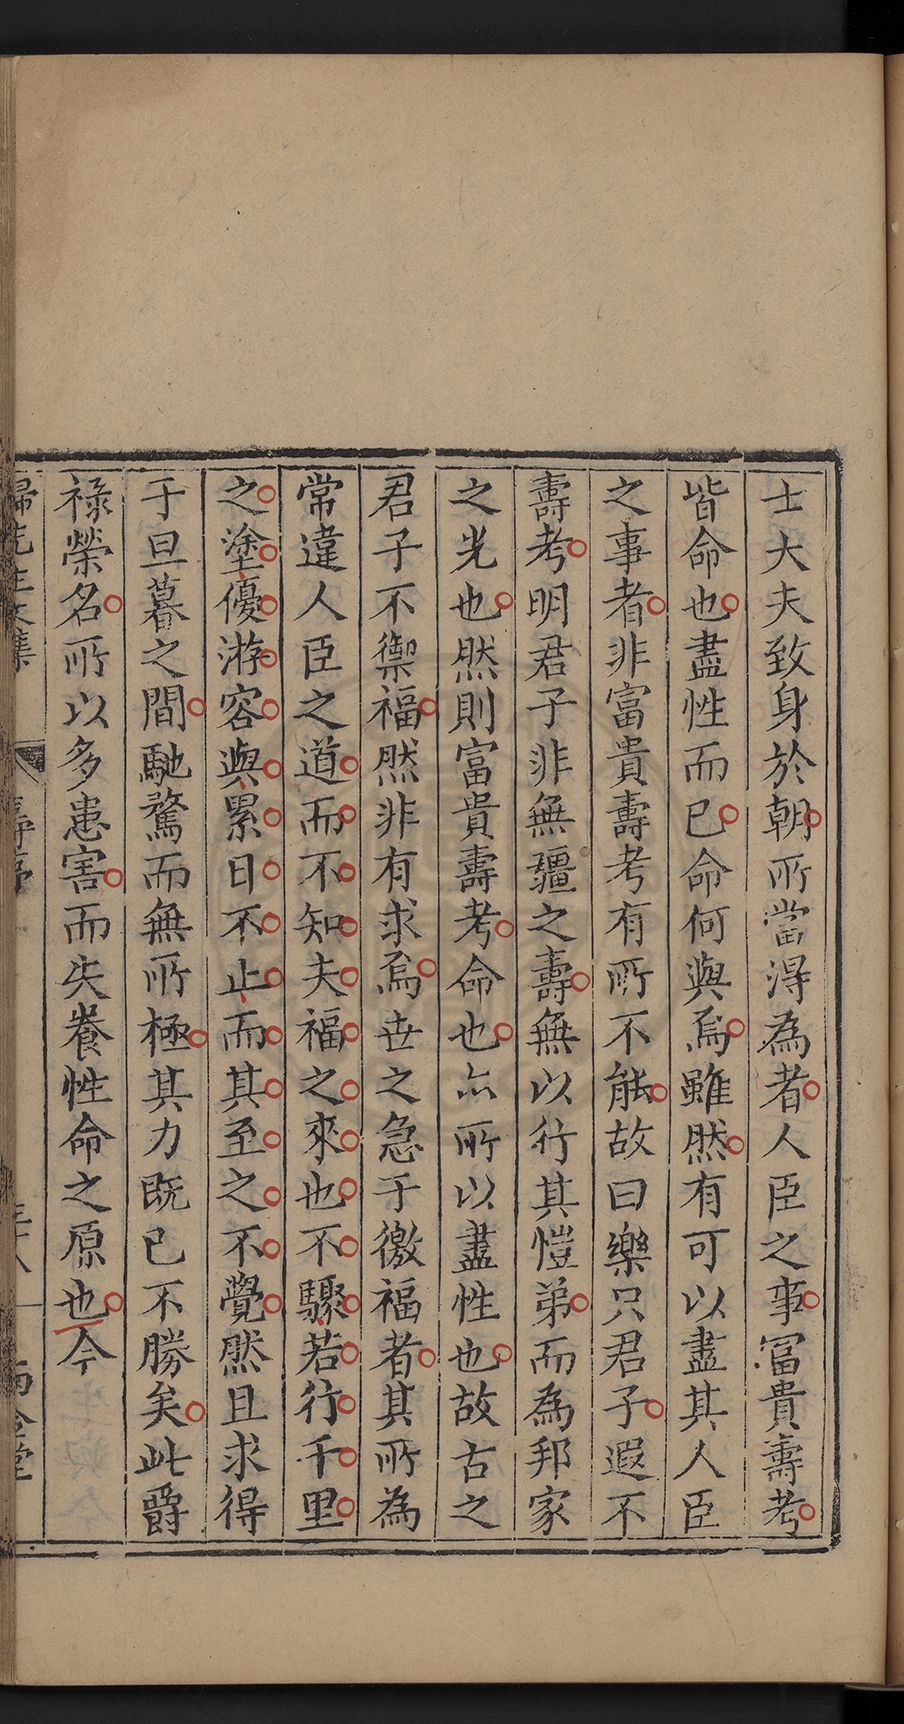 士大夫致身於朝所當淂為者人臣之事富貴壽考
皆命也盡性而已命何與焉雖然有可以盡其人臣
之事者非富貴壽考有所不能故曰樂只君子遐不
壽考明君子非無疆之壽無以行其愷弟而為邦家
之光也然則富貴壽考命也亦所以盡性也故古之
君子不禦福然非有求焉世之急于徼福者其所為
常違人臣之道而不知夫福之來也不驟若行千里
之塗優游容與累日不止而其至之不覺然且求得
于旦暮之間馳騖而無所極其力既已不勝矣此爵
祿榮名所以多患害而失養性命之原也今
歸先生文集